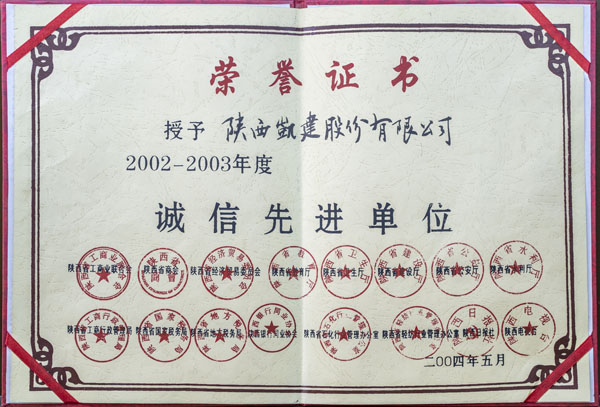 荣誉证书
授予 陕西凯建股份有限公司
2002-2003年度
诚信先进单位
陕西省工商业联合会 陕西省商会 陕西省经济贸易委员会 陕西省教育厅 陕西省卫生厅 陕西省建设厅 陕西省公安厅 陕西省水利厅
陕西省工商行政管理局 陕西省国家税务局 陕西省地方税务局 陕西银行同业协会 陕西省石化行业管理办公室 陕西省轻纺行业管理办公室 陕西日报社 陕西电视台
二00四年五月